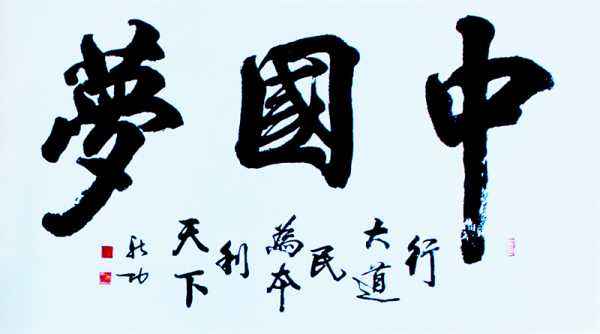 中國夢
行大道民為本利天下